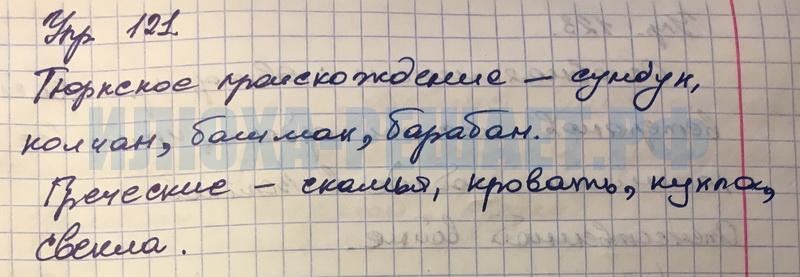 Упр 121
Тюркское происхождение – сундук,
колчан, башмак, барабан.
ИЛЮХА-РЕШАЕТ.РФ
Греческие – скамья, кровать, кукла,
свекла.